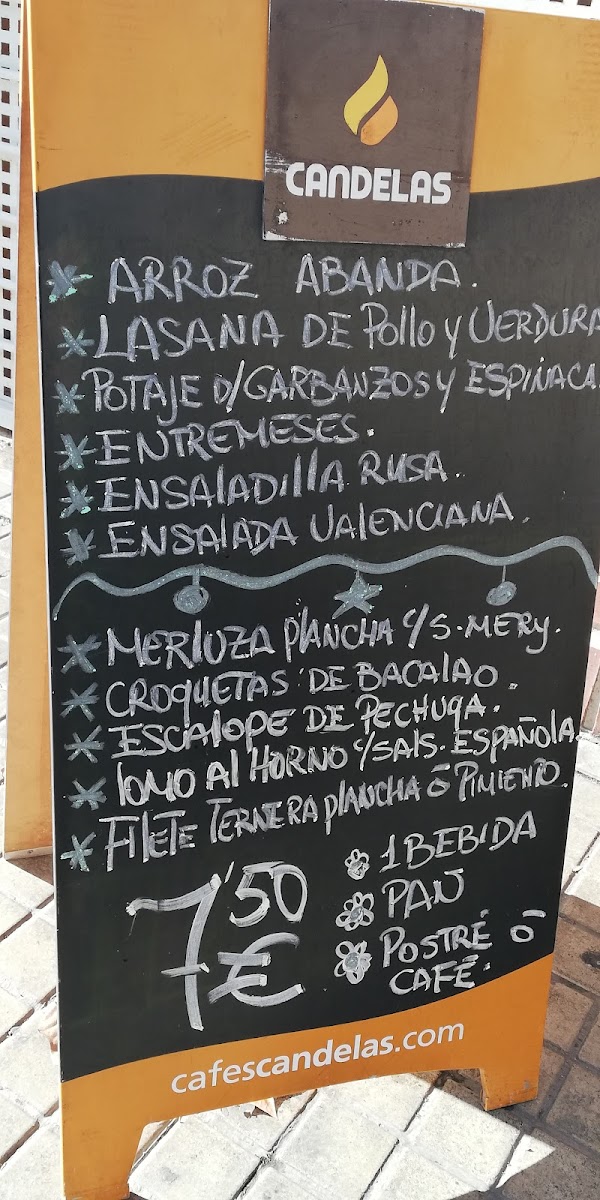 CANDELAS
* ARROZ ABANDA.
* LASANA DE Pollo y VERDURA
* POTAJE D/GARBANZOS y ESPINACA.
* ENTREMESES.
* ENSALADILLA RUSA.
* ENSALADA VALENCIANA.
* MERLUZA PLANCHA C/S. MERY.
* CROQUETAS DE BACALAO.
* ESCALOPE DE PECHUGA.
* LOMO AL HORNO C/SALS. ESPAÑOLA.
* FILETE TERNERA PLANCHA Ó PIMIENTO.
7'50 €
1 BEBIDA
PAN
POSTRÉ Ó
CAFÉ.
cafescandelas.com